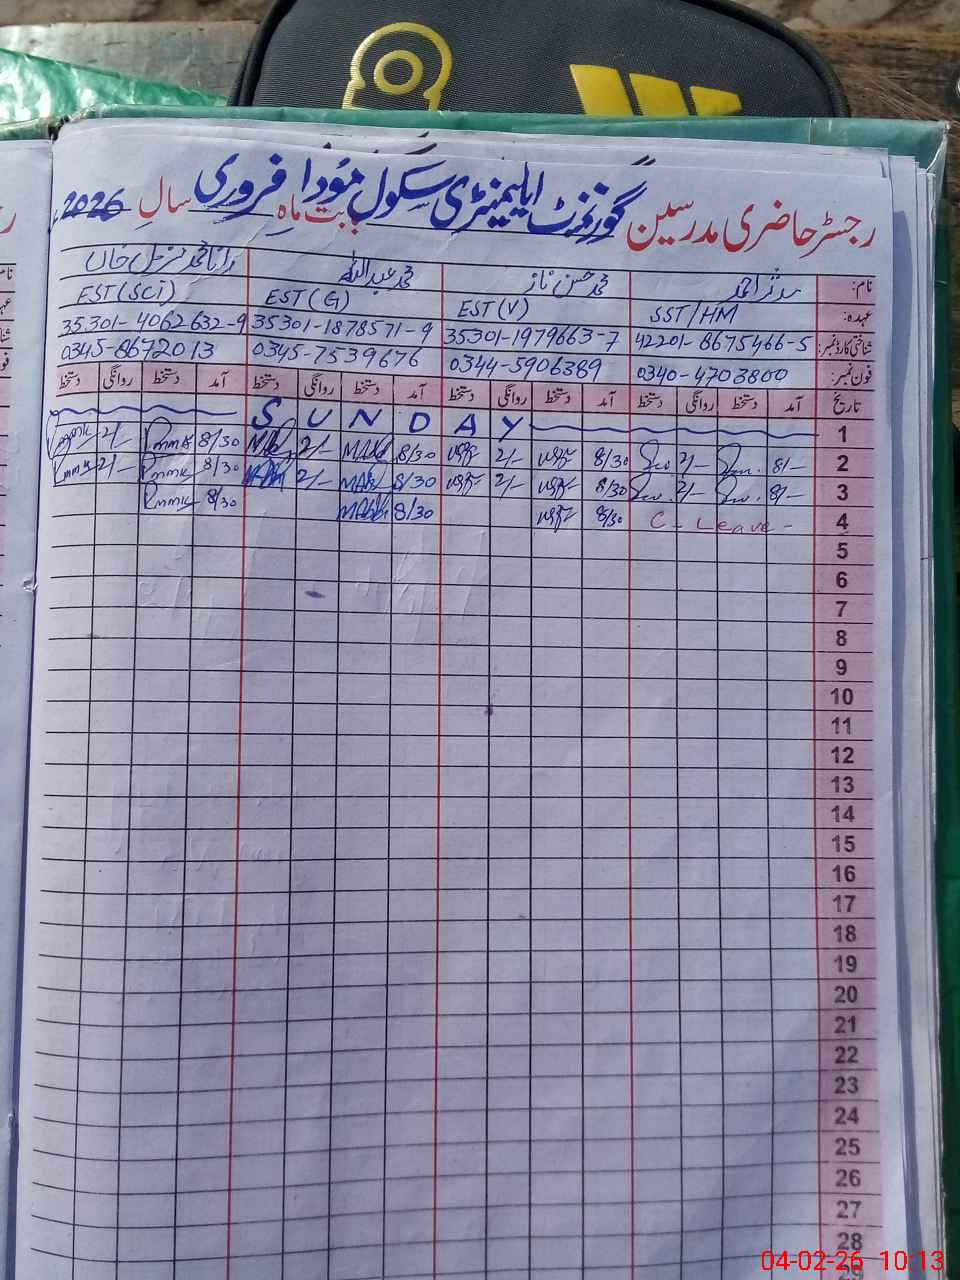 رجسٹر حاضری مدرسین گورنمنٹ ایلیمنٹری سکول بابت ماہِ فروری سالِ 2026
نام: مدثر احمد محمد حسن ناز محمد عبداللہ رانا محمد مزمل خاں
عہدہ: SST/HM EST(V) EST(G) EST(SCi)
شناختی کارڈ نمبر: 42201-8675466-5 35301-1979663-7 35301-1878571-9 35301-4062632-9
فون نمبر: 0340-4703800 0344-5906389 0345-7539676 0345-8672013
تاریخ آمد دستخط روانگی دستخط آمد دستخط روانگی دستخط آمد دستخط روانگی دستخط آمد دستخط روانگی دستخط
1 SUNDAY
2 8/- 2/- 8/30 2/- 8/30 2/- 8/30 2/-
3 8/- 2/- 8/30 2/- 8/30 2/- 8/30 2/-
4 C-Leave- 8/30 8/30 8/30
5
6
7
8
9
10
11
12
13
14
15
16
17
18
19
20
21
22
23
24
25
26
27
28
29
04-02-26 10:13